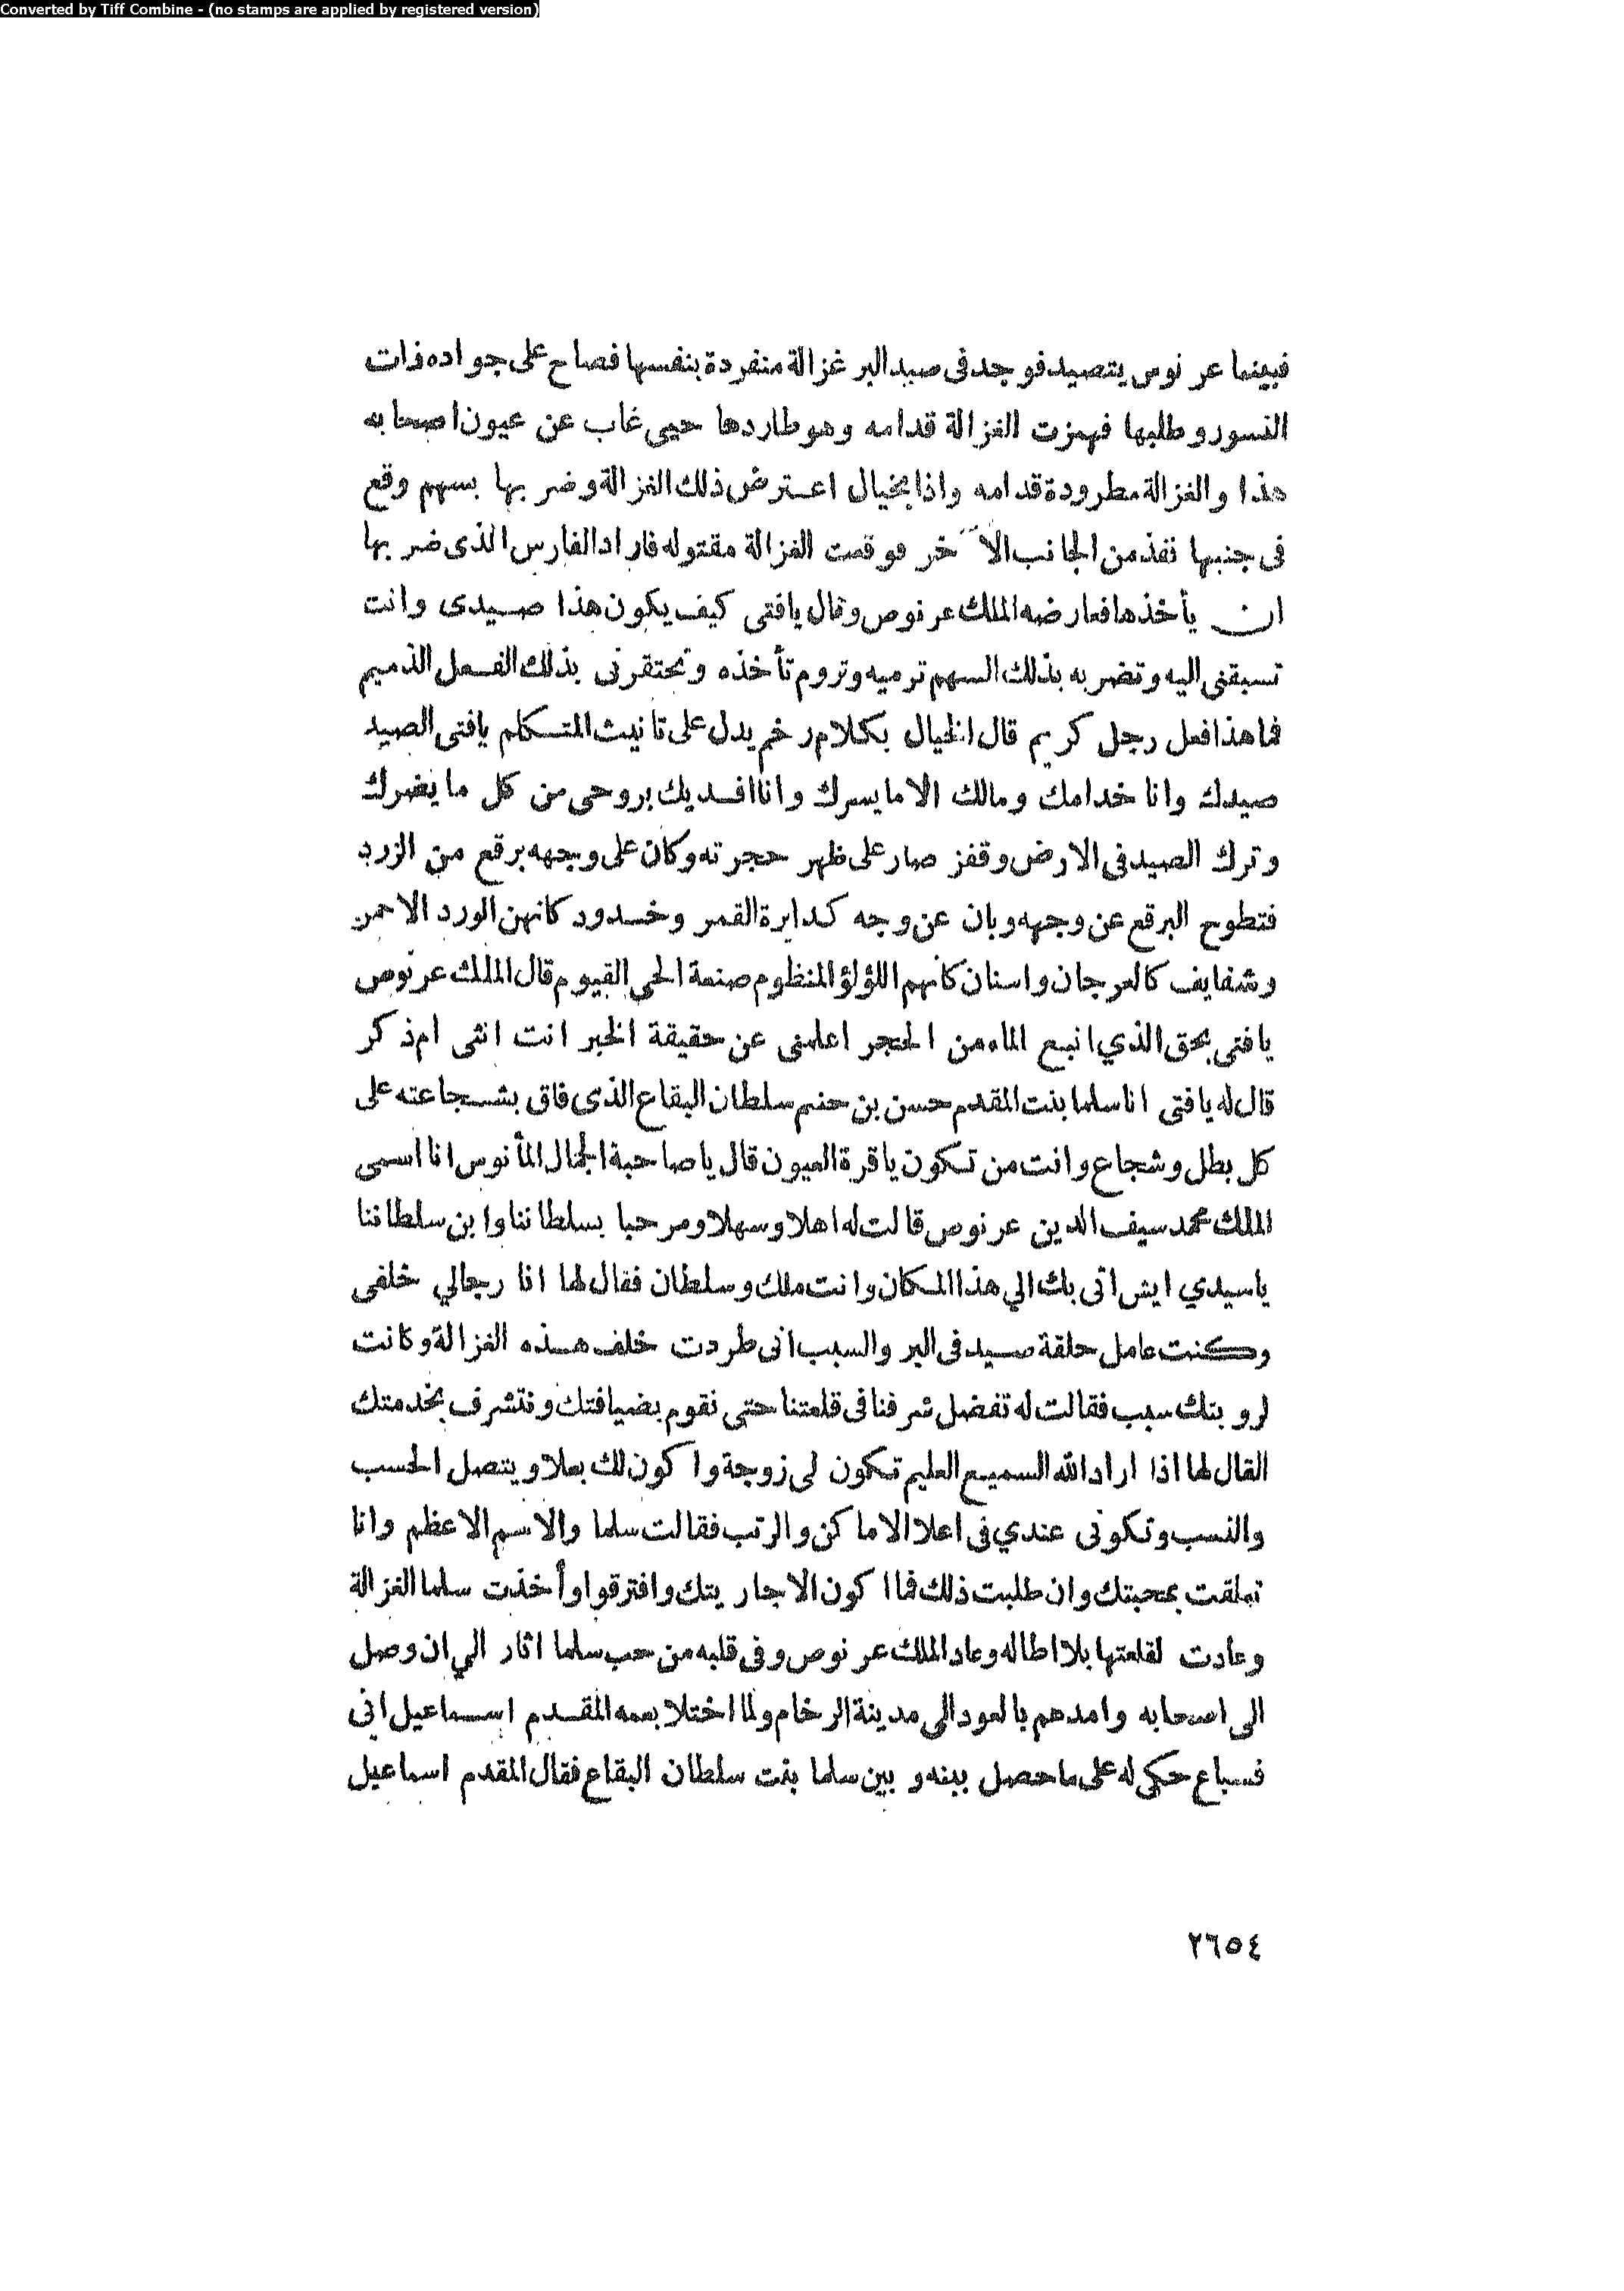 Converted by Tiff Combine - (no stamps are applied by registered version)
فبينما عرنوس يتصيد فوجد فى صيد البر غزالة منفردة بنفسها فصاح على جواده ذات
النسور وطلبها فهمزت الغزالة قدامه وهو طاردها حتى غاب عن عيون اصحابه
هذا والغزالة مطرودة قدامه واذا بخيال اعترض ذلك الغزالة وضربها بسهم وقع
فى جنبها نفذ من الجانب الآخر فوقعت الغزالة مقتوله فاراد الفارس الذى ضربها
ان يأخذها فعارضه الملك عرنوص وقال يافتى كيف يكون هذا صيدى وانت
تسبقنى اليه وتضربه بذلك السهم ترميه وتروم تأخذه وتحتقرنى بذلك الفعل الذميم
فما هذا فعل رجل كريم قال الخيال بكلام رخم يدل على تانيث المتكلم يافتى الصيد
صيدك وانا خدامك ومالك الا ما يسرك وانا افديك بروحى من كل ما يضرك
وترك الصيد فى الارض وقفز صار على ظهر حجرته وكان على وجهه برقع من الزرد
فتطوح البرقع عن وجهه وبان عن وجه كدايرة القمر وخدود كانهن الورد الاحمر
وشفايف كالمرجان واسنان كأنهم اللؤلؤ المنظوم صنعة الحى القيوم قال الملك عرنوص
يافتى بحق الذي انبع الماء من الحجر اعلمنى عن حقيقة الخبر انت انثى ام ذكر
قال له يافتى انا سلما بنت المقدم حسن بن حنم سلطان البقاع الذى فاق بشجاعته على
كل بطل وشجاع وانت من تكون ياقرة العيون قال ياصاحبة الجمال المأنوس انا اسمى
الملك محمد سيف الدين عرنوص قالت له اهلا وسهلا ومرحبا بسلطاننا وابن سلطاننا
ياسيدي ايش اتى بك الي هذا المكان وانت ملك وسلطان فقال لها انا رجالي خلفى
وكنت عامل حلقة صيد فى البر والسبب انى طردت خلف هذه الغزالة وكانت
لرويتك سبب فقالت له تفضل شرفنا فى قلعتنا حتى نقوم بضيافتك ونتشرف بخدمتك
القال لها اذا اراد الله السميع العليم تكون لى زوجة واكون لك بعلا ويتصل الحسب
والنسب وتكونى عندي فى اعلا الاماكن والرتب فقالت سلما والاسم الاعظم وانا
تعلقت بمحبتك وان طلبت ذلك فما اكون الا جاريتك وافترقوا وأخذت سلما الغزالة
وعادت لقلعتها بلا اطاله وعاد الملك عرنوص وفى قلبه من حب سلما اثار الي ان وصل
الى اصحابه وامدهم بالعود الى مدينة الرخام ولما اختلا بعمه المقدم اسماعيل ابى
فسباع حكى له على ما حصل بينه وبين سلما بنت سلطان البقاع فقال المقدم اسماعيل
٢٦٥٤